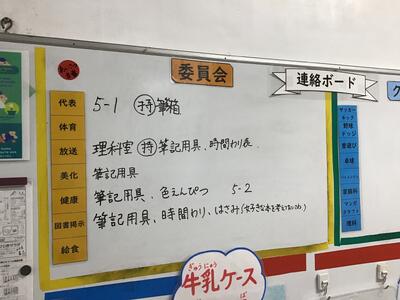 委員会
連絡ボード
代表 5-1 持 筆箱
体育
放送 理科室 持 筆記用具、時間わり表
美化 筆記用具
健康 筆記用具、色えんぴつ 5-2
図書掲示 筆記用具、時間わり、はさみ
給食
サッカー
キック
野球
ドッジ
昔遊び
卓球
家庭科
マンガ
クラフト
理科
ぎゅうにゅう
牛乳ケース